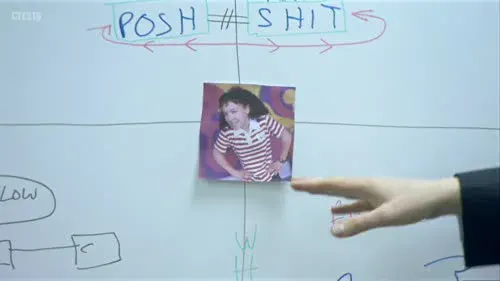 BBC
POSH SHIT
LOW
C
W
H